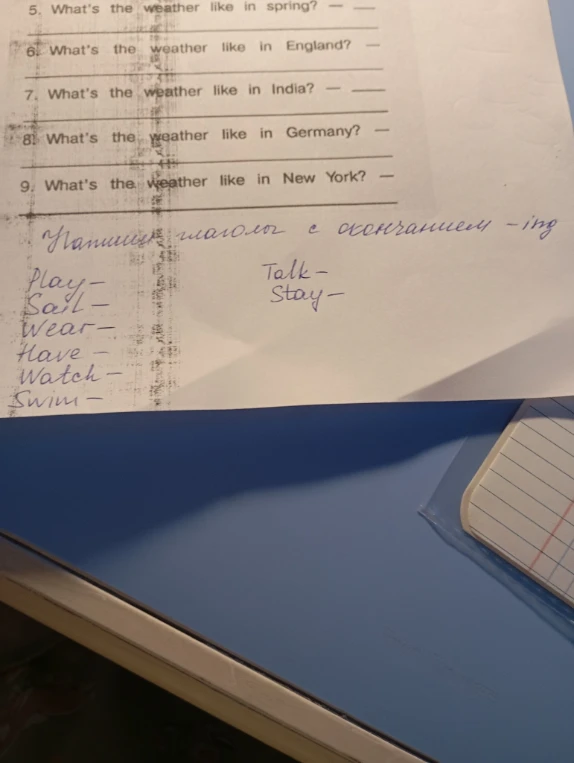 5. What's the weather like in spring? — ___
6. What's the weather like in England? —
7. What's the weather like in India? — ___
8. What's the weather like in Germany? —
9. What's the weather like in New York? —
Напиши глаголы с окончанием -ing
Play –
Sail –
Wear –
Have –
Watch –
Swim –
Talk –
Stay –